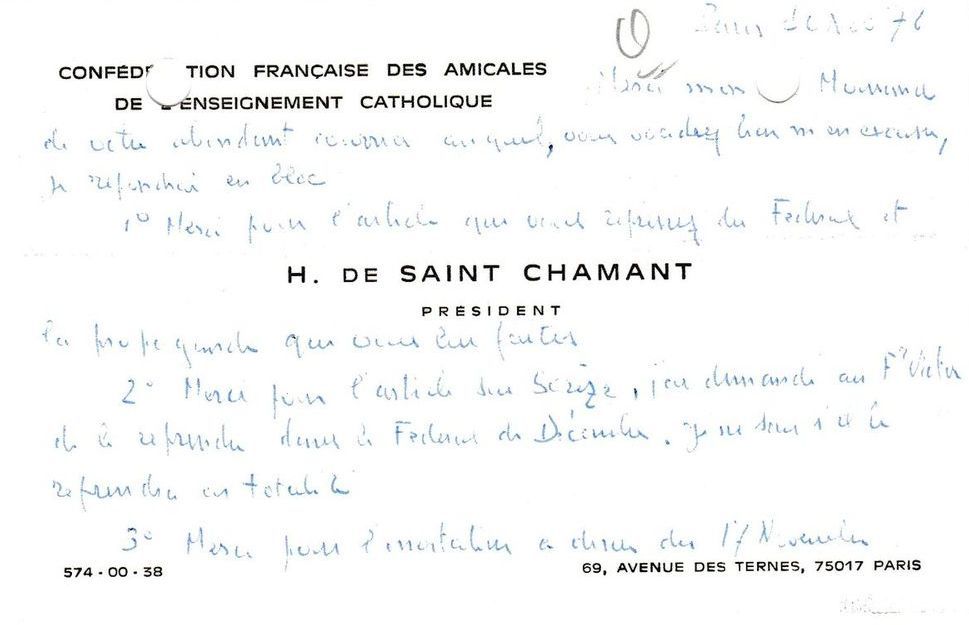 Paris 76
CONFÉD TION FRANÇAISE DES AMICALES
DE L'ENSEIGNEMENT CATHOLIQUE
Merci mon
de votre abondant courrier auquel, vous voudrez bien m'en excuser,
je répondrai en bloc
1° Merci pour l'article que vous reprenez du Federal et
H. DE SAINT CHAMANT
PRÉSIDENT
la propagande que vous lui faites
2° Merci pour l'article sur, j'ai demandé au F. Victor
de le reprendre dans le Federal de Décembre. Je ne sais s'il le
reprendra en totalité
3° Merci pour l'invitation a diner du 17 Novembre
574-00-38
69, AVENUE DES TERNES, 75017 PARIS